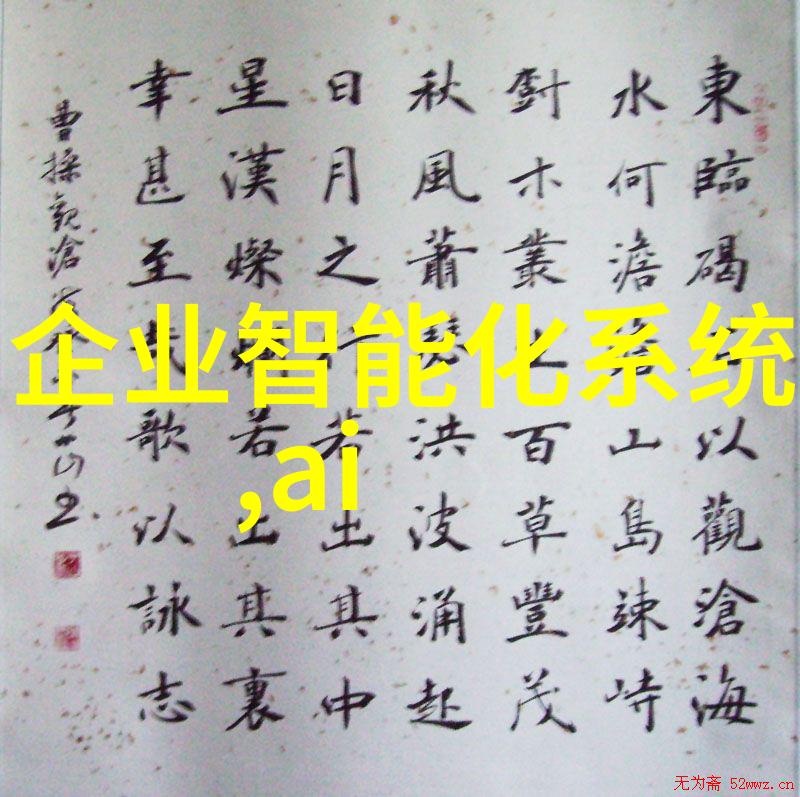 東臨碣石以觀滄海
水何澹澹山島竦峙
尌木叢生百草豐茂
秋風蕭瑟洪波涌起
日月之行若出其中
星漢燦爛若出其裏
幸甚至哉歌以詠志
曹操觀滄
企业智能化系统
,ai
无为斋 52wwz.cn